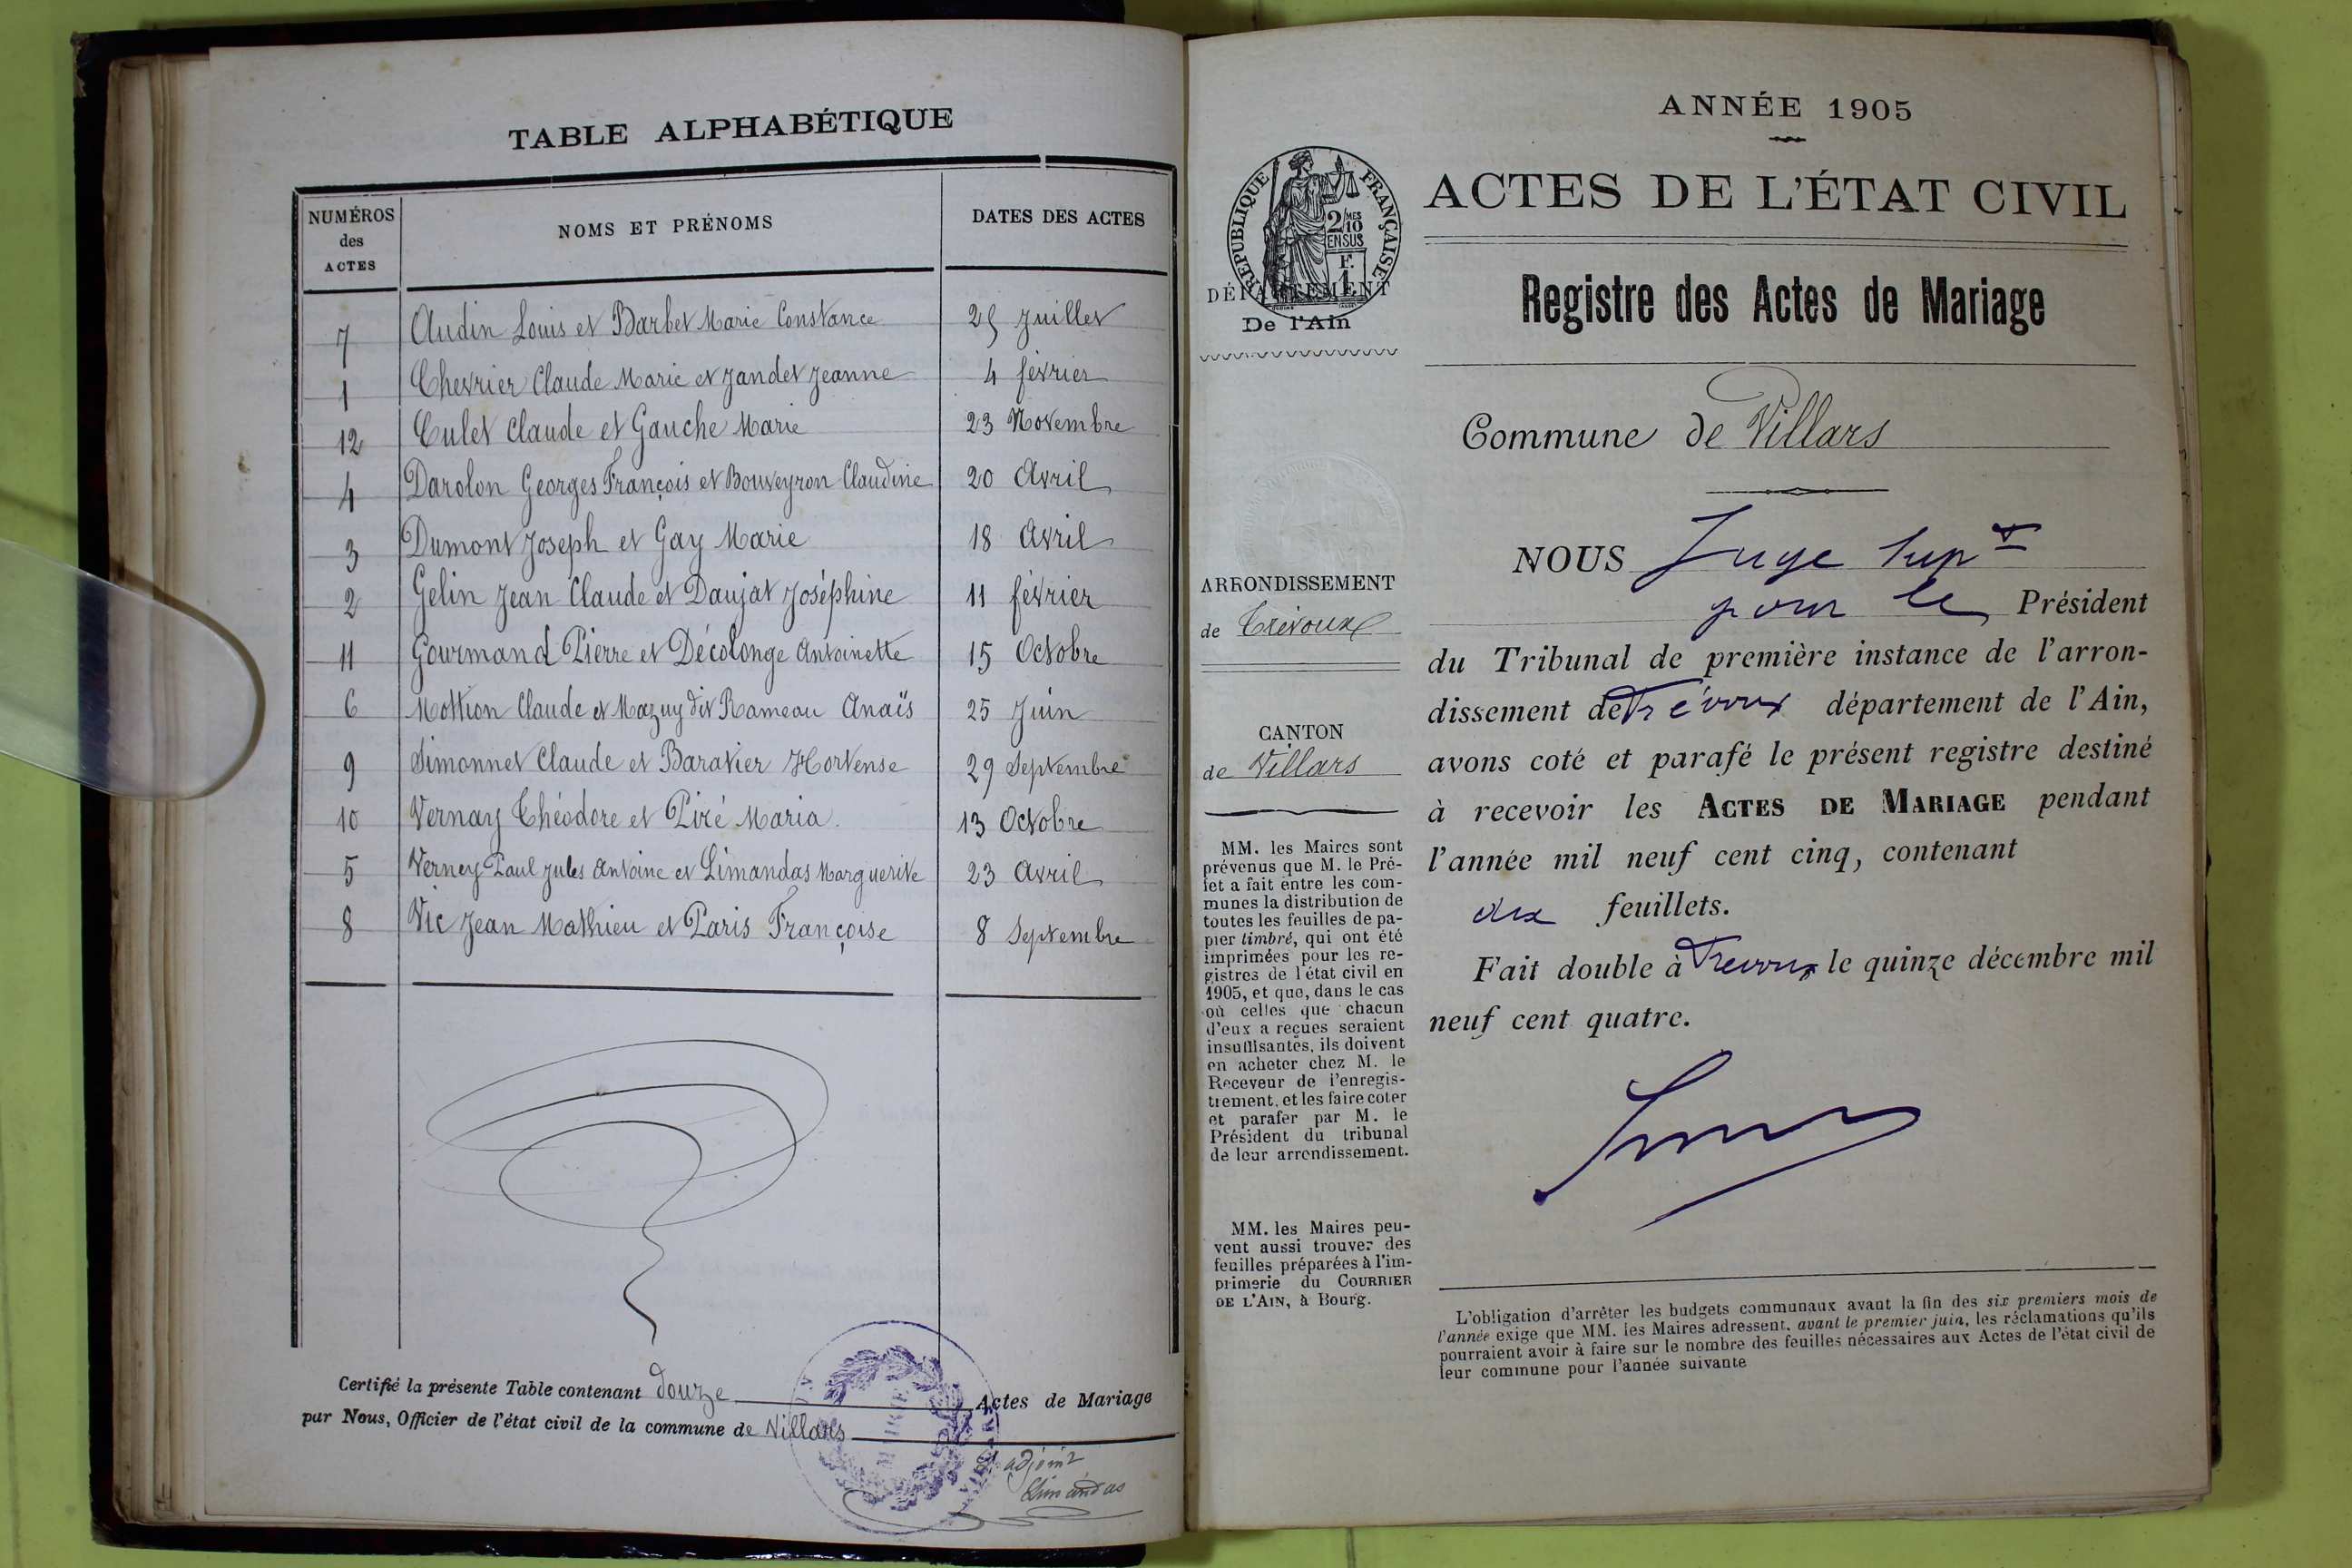 TABLE ALPHABÉTIQUE
NUMÉROS
des
ACTES
NOMS ET PRÉNOMS
DATES DES ACTES
7 Audin Louis et Barbet Marie Constance 25 Juillet
1 Chevrier Claude Marie et Jandet Jeanne 4 février
12 Culet Claude et Gauche Marie 23 Novembre
4 Darolon Georges François et Bouveyron Claudine 20 Avril
3 Dumont Joseph et Gay Marie 18 Avril
2 Gelin Jean Claude et Daujat Joséphine 11 février
11 Gourmand Pierre et Décolonge Antoinette 15 Octobre
6 Mottion Claude et Mazuy dit Rameau Anaïs 25 Juin
9 Simonnet Claude et Baratier Hortense 29 Septembre
10 Vernay Théodore et Piré Maria. 13 Octobre
5 Verney Paul Jules Antoine et Limandas Marguerite 23 Avril
8 Vic Jean Mathieu et Paris Françoise 8 Septembre
Certifié la présente Table contenant douze Actes de Mariage
par Nous, Officier de l'état civil de la commune de Villars
adjoint
Limandas
ANNÉE 1905
RÉPUBLIQUE FRANÇAISE
2/10MES
EN SUS
F.
1
DÉPARTEMENT
De l'Ain
ACTES DE L'ÉTAT CIVIL
Registre des Actes de Mariage
Commune de Villars
NOUS Juge supt
pour le Président
du Tribunal de première instance de l'arron-
dissement de Trévoux département de l'Ain,
avons coté et parafé le présent registre destiné
à recevoir les ACTES DE MARIAGE pendant
l'année mil neuf cent cinq, contenant
dix feuillets.
Fait double à Trévoux le quinze décembre mil
neuf cent quatre.
ARRONDISSEMENT
de Trévoux
CANTON
de Villars
MM. les Maires sont
prévenus que M. le Pré-
fet a fait entre les com-
munes la distribution de
toutes les feuilles de pa-
pier timbré, qui ont été
imprimées pour les re-
gistres de l'état civil en
1905, et que, dans le cas
où celles que chacun
d'eux a reçues seraient
insuffisantes, ils doivent
en acheter chez M. le
Receveur de l'enregis-
trement, et les faire coter
et parafer par M. le
Président du tribunal
de leur arrondissement.
MM. les Maires peu-
vent aussi trouver des
feuilles préparées à l'im-
primerie du COURRIER
DE L'AIN, à Bourg.
L'obligation d'arrêter les budgets communaux avant la fin des six premiers mois de
l'année exige que MM. les Maires adressent, avant le premier juin, les réclamations qu'ils
pourraient avoir à faire sur le nombre des feuilles nécessaires aux Actes de l'état civil de
leur commune pour l'année suivante